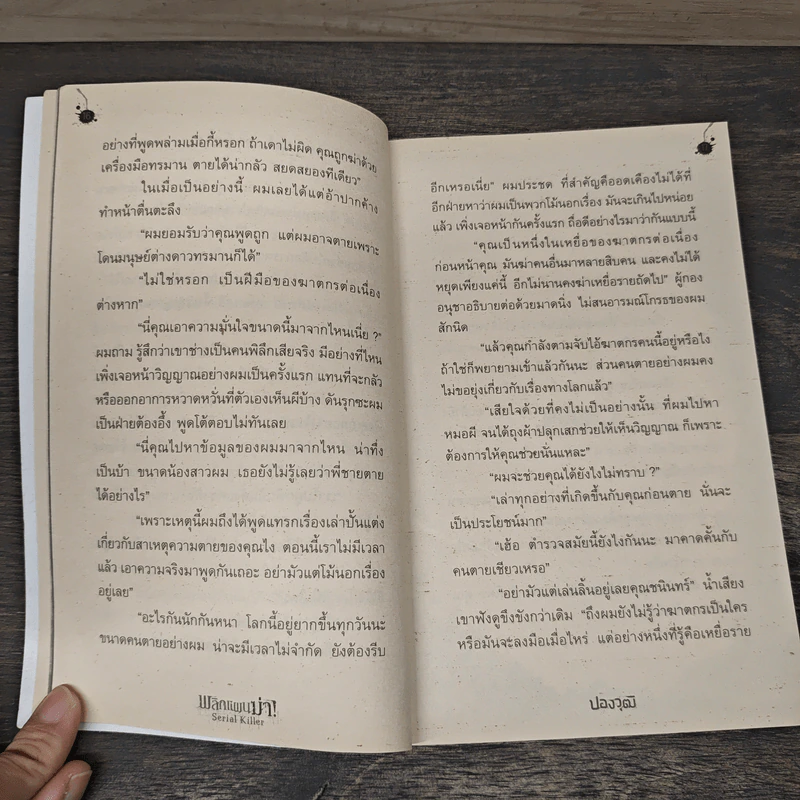 อย่างที่พูดพล่ามเมื่อกี้หรอก ถ้าเดาไม่ผิด คุณถูกฆ่าด้วย
เครื่องมือทรมาน ตายได้น่ากลัว สยดสยองทีเดียว”
ในเมื่อเป็นอย่างนี้ ผมเลยได้แต่อ้าปากค้าง
ทำหน้าตื่นตะลึง
“ผมยอมรับว่าคุณพูดถูก แต่ผมอาจตายเพราะ
โดนมนุษย์ต่างดาวทรมานก็ได้”
“ไม่ใช่หรอก เป็นฝีมือของฆาตกรต่อเนื่อง
ต่างหาก”
“นี่คุณเอาความมั่นใจขนาดนี้มาจากไหนเนี่ย ?”
ผมถาม รู้สึกว่าเขาช่างเป็นคนพิลึกเสียจริง มีอย่างที่ไหน
เพิ่งเจอหน้าวิญญาณอย่างผมเป็นครั้งแรก แทนที่จะกลัว
หรือออกอาการหวาดหวั่นที่ตัวเองเห็นผีบ้าง ดันรุกซะผม
เป็นฝ่ายต้องอึ้ง พูดโต้ตอบไม่ทันเลย
“นี่คุณไปหาข้อมูลของผมมาจากไหน น่าทึ่ง
เป็นบ้า ขนาดน้องสาวผม เธอยังไม่รู้เลยว่าพี่ชายตาย
ได้อย่างไร”
“เพราะเหตุนี้ผมถึงได้พูดแทรกเรื่องเล่าปั้นแต่ง
เกี่ยวกับสาเหตุความตายของคุณไง ตอนนี้เราไม่มีเวลา
แล้ว เอาความจริงมาพูดกันเถอะ อย่ามัวแต่โม้นอกเรื่อง
อยู่เลย”
“อะไรกันนักกันหนา โลกนี้อยู่ยากขึ้นทุกวันนะ
ขนาดคนตายอย่างผม น่าจะมีเวลาไม่จำกัด ยังต้องรีบ
พลิกแผนฆ่า!
Serial Killer
อีกเหรอเนี่ย” ผมประชด ที่สำคัญคืออดเคืองไม่ได้ที่
อีกฝ่ายหาว่าผมเป็นพวกโม้นอกเรื่อง มันจะเกินไปหน่อย
แล้ว เพิ่งเจอหน้ากันครั้งแรก ถือดีอย่างไรมาว่ากันแบบนี้
“คุณเป็นหนึ่งในเหยื่อของฆาตกรต่อเนื่อง
ก่อนหน้าคุณ มันฆ่าคนอื่นมาหลายสิบคน และคงไม่ได้
หยุดเพียงแค่นี้ อีกไม่นานคงฆ่าเหยื่อรายถัดไป” ผู้กอง
อนุชาอธิบายต่อด้วยมาดนิ่ง ไม่สนอารมณ์โกรธของผม
สักนิด
“แล้วคุณกำลังตามจับไอ้ฆาตกรคนนี้อยู่หรือไง
ถ้าใช่ก็พยายามเข้าแล้วกันนะ ส่วนคนตายอย่างผมคง
ไม่ขอยุ่งเกี่ยวกับเรื่องทางโลกแล้ว”
“เสียใจด้วยที่คงไม่เป็นอย่างนั้น ที่ผมไปหา
หมอผี จนได้ถุงผ้าปลุกเสกช่วยให้เห็นวิญญาณ ก็เพราะ
ต้องการให้คุณช่วยนั่นแหละ”
“ผมจะช่วยคุณได้ยังไงไม่ทราบ ?”
“เล่าทุกอย่างที่เกิดขึ้นกับคุณก่อนตาย นั่นจะ
เป็นประโยชน์มาก”
“เฮ้อ ตำรวจสมัยนี้ยังไงกันนะ มาคาดคั้นกับ
คนตายเชียวเหรอ”
“อย่ามัวแต่เล่นลิ้นอยู่เลยคุณชนินทร์” น้ำเสียง
เขาฟังดูขึงขังกว่าเดิม “ถึงผมยังไม่รู้ว่าฆาตกรเป็นใคร
หรือมันจะลงมือเมื่อไหร่ แต่อย่างหนึ่งที่รู้คือเหยื่อราย
ปองวุฒิ